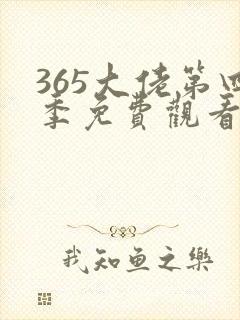 365大佬第四
季免費觀看
我知鱼之樂